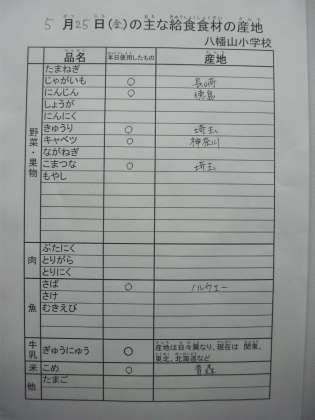 5月25日(金)の主な給食食材の産地
八幡山小学校
品名 本日使用したもの 産地
野菜・果物
たまねぎ
じゃがいも ○ 長崎
にんじん ○ 徳島
しょうが
にんにく
きゅうり ○ 埼玉
キャベツ ○ 神奈川
ながねぎ
こまつな ○ 埼玉
もやし
肉
ぶたにく
とりがら
とりにく
魚
さば ○ ノルウェー
さけ
むきえび
牛乳 ぎゅうにゅう ○ 産地は日々異なり、現在は 関東、
東北、北海道など
米 こめ ○ 青森
他 たまご